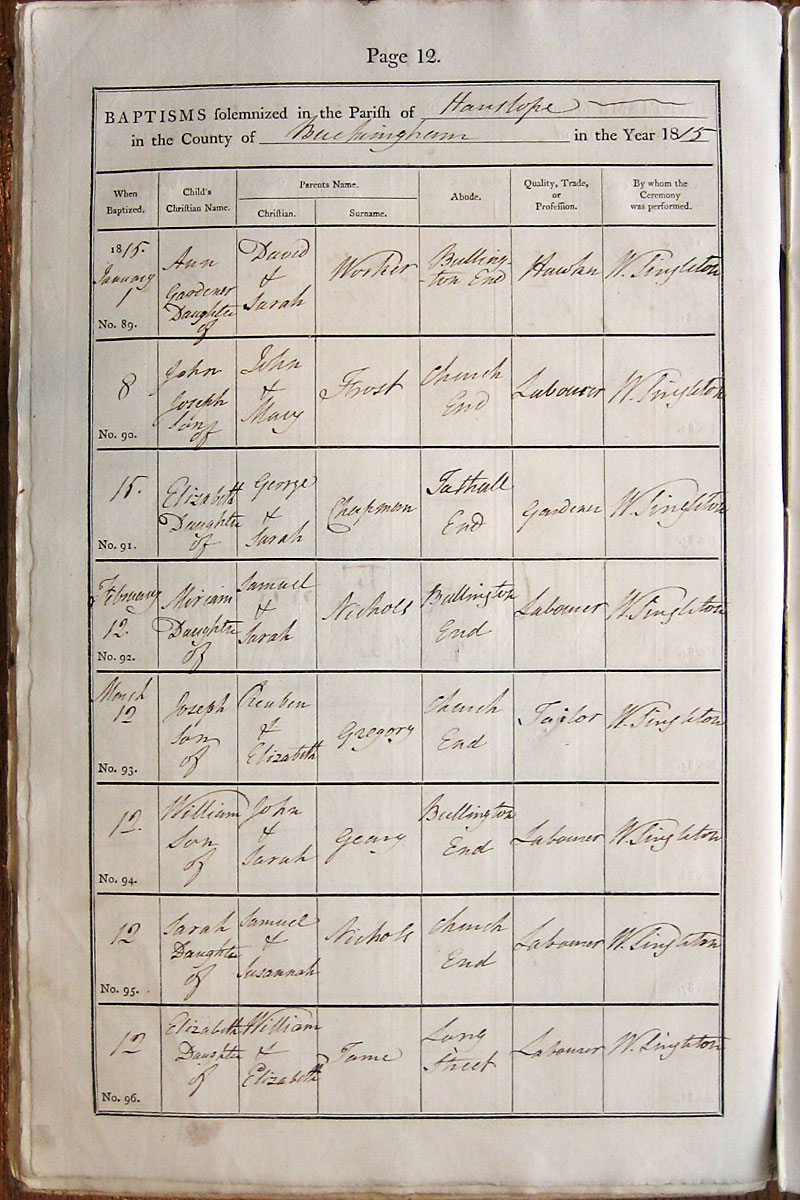 Page 12.
BAPTISMS solemnized in the Parish of Hanslope
in the County of Buckingham in the Year 1815
When Baptized. Child's Christian Name. Parents Name. Christian. Surname. Abode. Quality, Trade, or Profession. By whom the Ceremony was performed.
1815. January 1 No. 89. Ann Gardener Daughter of David & Sarah Worker Bullington End W. Singleton
8 No. 90. John Joseph Son of John & Mary Frost Church End Labourer W. Singleton
15. No. 91. Elizabeth Daughter of George & Sarah Chapman Tathall End Gardener W. Singleton
February 12. No. 92. Miriam Daughter of Samuel & Sarah Nichols Bullington End Labourer W. Singleton
March 12 No. 93. Joseph Son of Reuben & Elizabeth Gregory Church End Taylor W. Singleton
12. No. 94. William Son of John & Sarah Geary Bullington End Labourer W. Singleton
12 No. 95. Sarah Daughter of Samuel & Susannah Nichols Church End Labourer W. Singleton
12 No. 96. Elizabeth Daughter of William & Elizabeth Tame Long Street Labourer W. Singleton